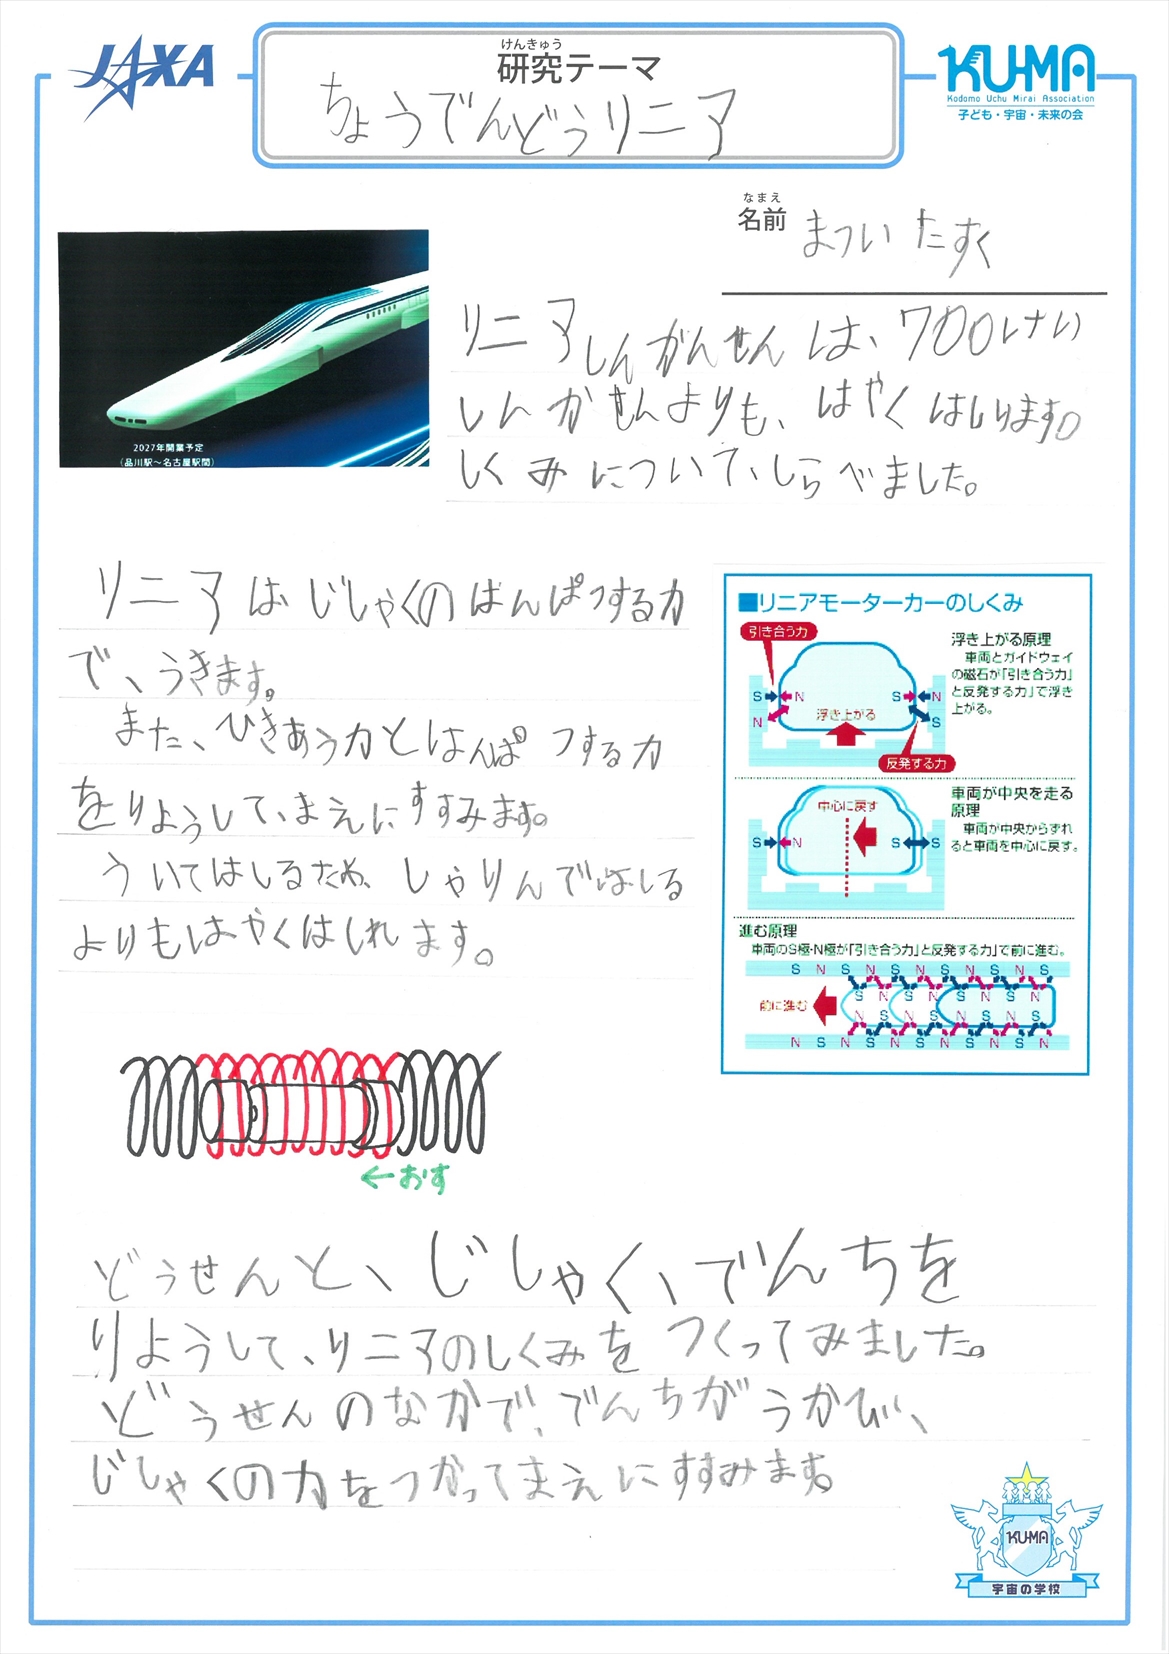 JAXA
けんきゅう
研究テーマ
ちょうでんどうリニア
KUMA
Kodomo Uchu Mirai Association
子ども・宇宙・未来の会
なまえ
名前 まつい たすく
2027年開業予定
(品川駅～名古屋駅間)
リニアしんかんせんは、700けい
しんかせんよりも、はやくはしります。
しくみについて、しらべました。
リニアはじしゃくのはんぱつする力
で、うきます。
また、ひきあう力とはんぱつする力
をりようして、まえにすすみます。
ういてはしるため、しゃりんではしる
よりもはやくはしれます。
■リニアモーターカーのしくみ
引き合う力
S N S N
N S
浮き上がる
反発する力
浮き上がる原理
車両とガイドウェイ
の磁石が「引き合う力」
と反発する力」で浮き
上がる。
中心に戻す
S N S S
車両が中央を走る
原理
車両が中央からずれ
ると車両を中心に戻す。
進む原理
車両のS極・N極が「引き合う力」と反発する力」で前に進む。
S N S N S N S N S N S
前に進む
S N S N S N S N
N S N S N S N S
N S N S N S N S N S N
←おす
どうせんと、じしゃく、でんちを
りようして、リニアのしくみをつくってみました。
どうせんのなかで、でんちがうかび、
じしゃくの力をつかってまえにすすみます。
KUMA
宇宙の学校